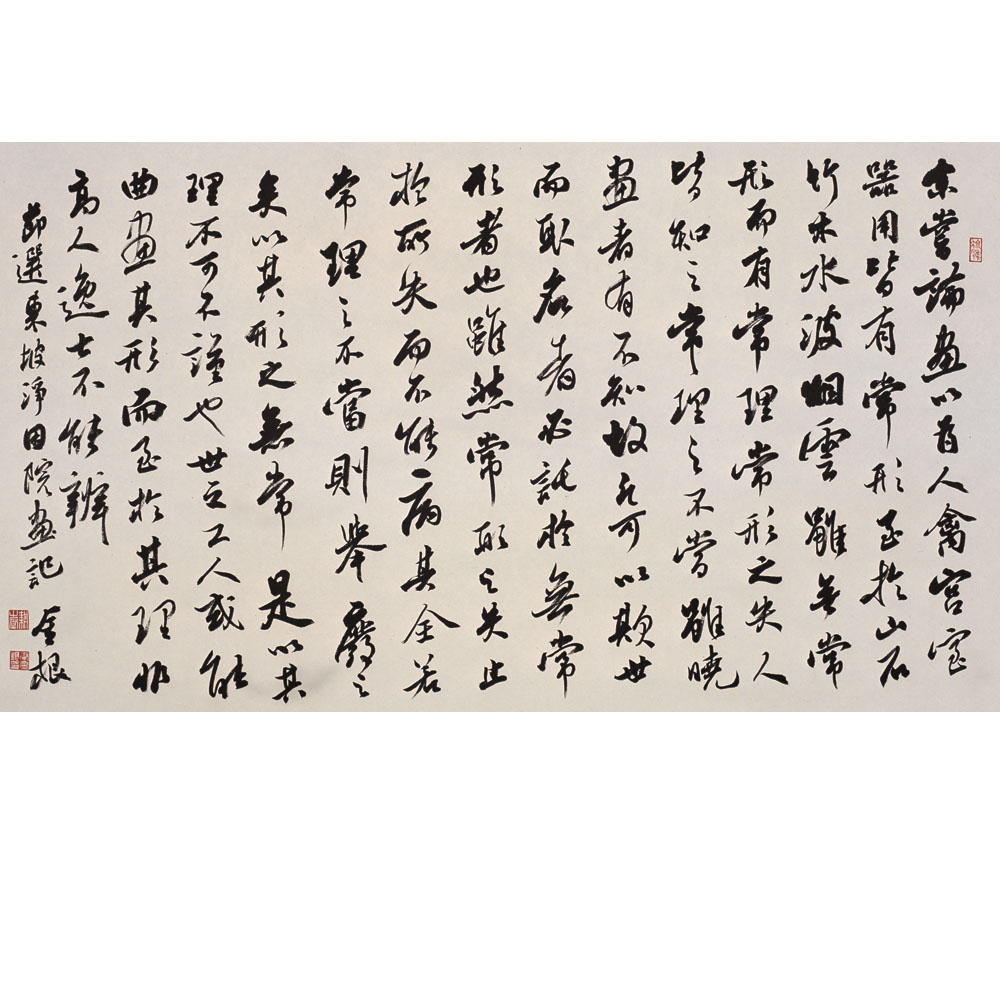 余嘗論畫以為人禽宮室
器用皆有常形至於山石
竹木水波烟雲雖無常
形而有常理常形之失人
皆知之常理之不當雖曉
畫者有不知故凡可以欺世
而取名者必託於無常
形者也雖然常形之失止
於所失而不能病其全若
常理之不當則舉廢之
矣以其形之無常是以其
理不可不謹也世之工人或能
曲畫其形而至於其理非
高人逸士不能辨
節選東坡淨因院畫記
金根